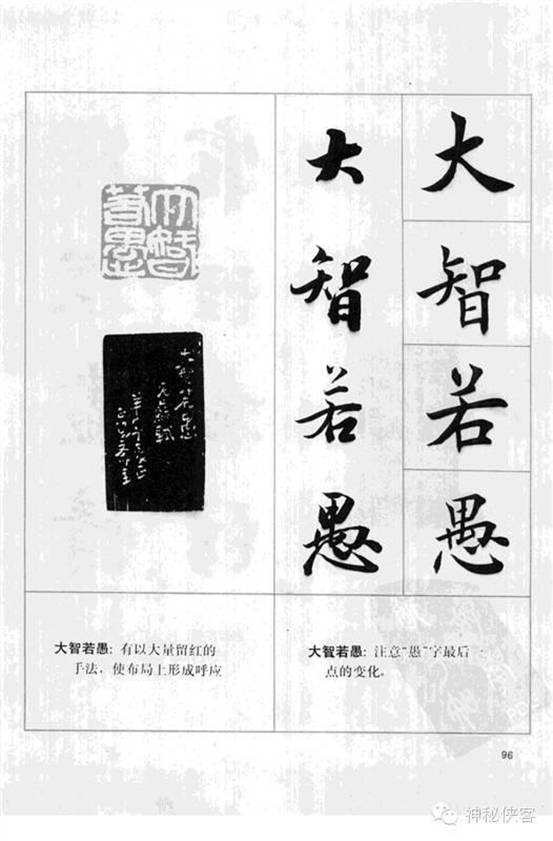 大智若愚
大智若愚
大智若愚
大智若愚: 有以大量留红的
手法，使布局上形成呼应
大智若愚: 注意“愚”字最后一
点的变化。
96
神秘侠客